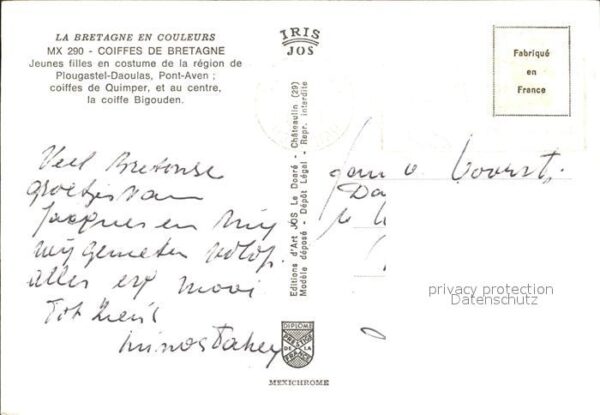 LA BRETAGNE EN COULEURS
MX 290 - COIFFES DE BRETAGNE
Jeunes filles en costume de la région de
Plougastel-Daoulas, Pont-Aven ;
coiffes de Quimper, et au centre,
la coiffe Bigouden.
IRIS
JOS
Fabriqué
en
France
Editions d'Art JOS Le Doaré - Châteaulin (29)
Modèle déposé - Dépôt Légal - Repr. interdite
Veel Bretonse
groetjes van
Jacques en My
wij genieten volop.
alles erg mooi
Tot ziens
fam v. Voorst
Da
privacy protection
Datenschutz
DIPLOME
PRESTIGE
DE LA
FRANCE
MEXICHROME